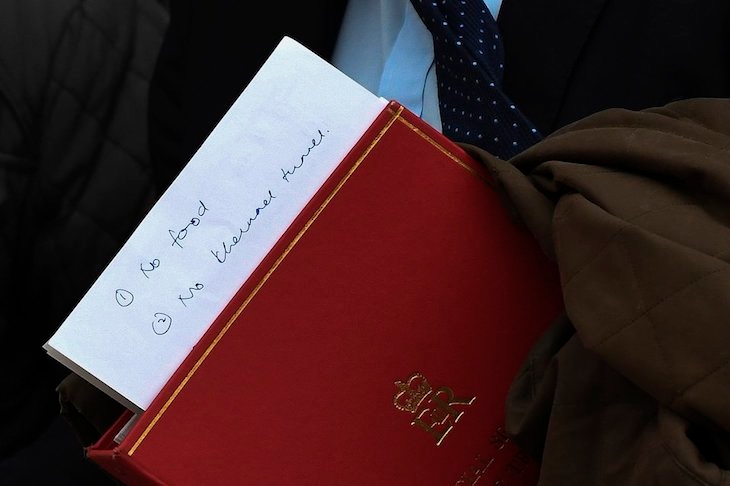 ① No food
② No channel tunnel.
EIIR